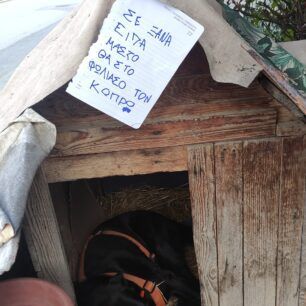 ΣΕ ΞΑΝΑ
ΕΙΠΑ
ΜΑΣΤΟ
ΘΑ ΣΤΟ
ΦΩΛΙΑΣΩ ΤΟΝ
ΚΟΠΡΟ